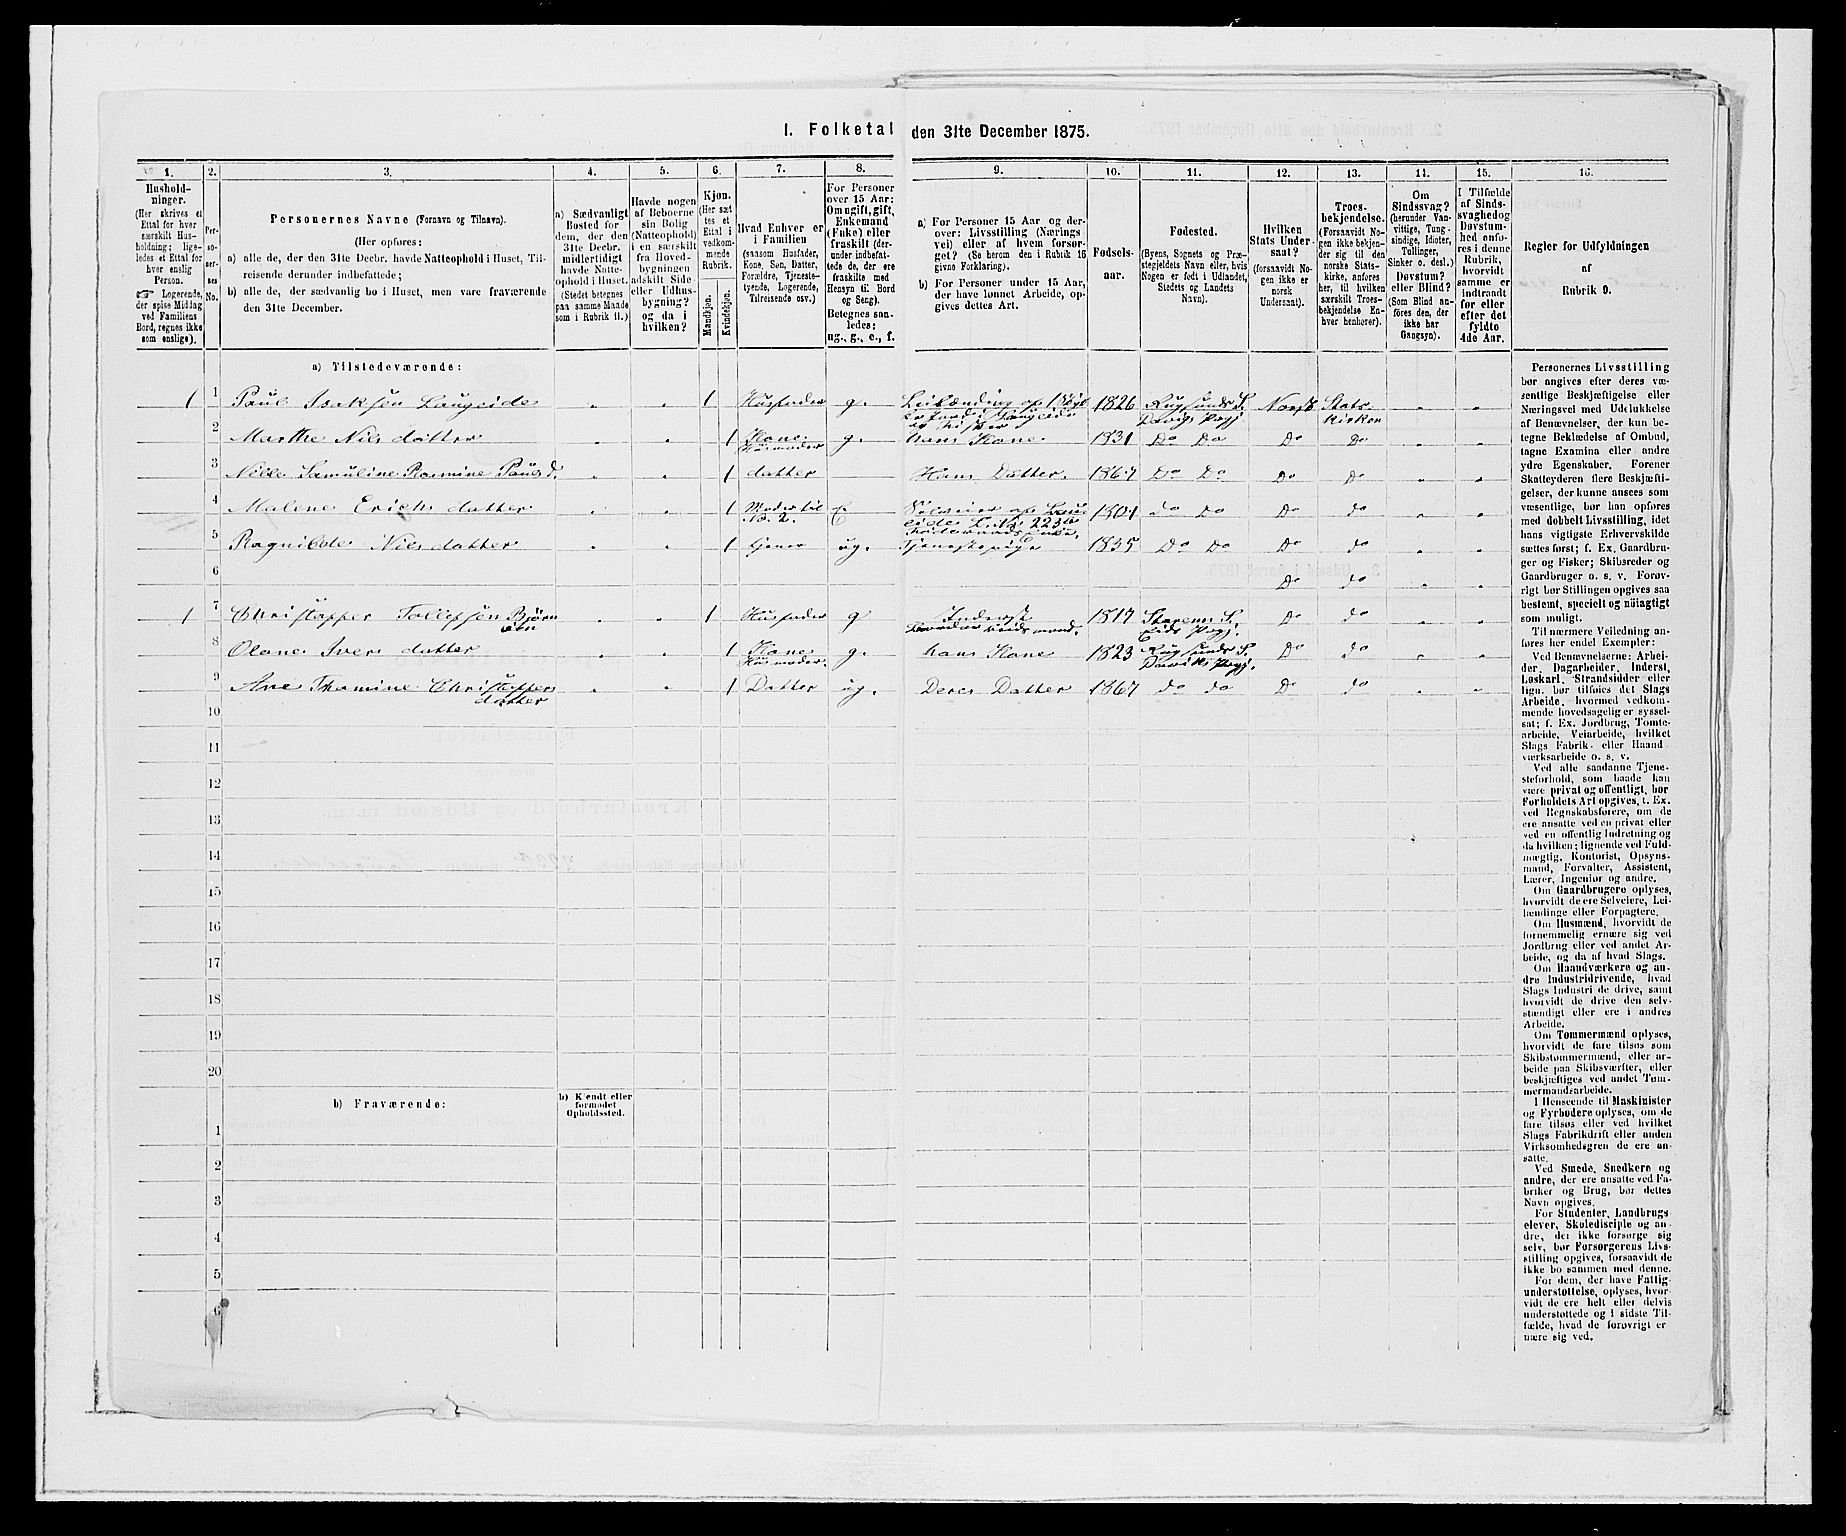 I. Folketal den 31te December 1875.
1. 2. 3. 4. 5. 6. 7. 8. 9. 10. 11. 12. 13. 14. 15. 16.
Hushold-
ninger.
(Her skrives et
Ettal for hver
særskilt Hus-
holdning; lige-
ledes et Ettal for
hver enslig
Person.
☞ Logerende,
der spise Middag
ved Familiens
Bord, regnes ikke
som enslige).
Per-
so-
ner-
nes
No.
Personernes Navne (Fornavn og Tilnavn).
(Her opføres:
a) alle de, der den 31te Decbr. havde Natteophold i Huset, Til-
reisende derunder indbefattede;
b) alle de, der sædvanlig bo i Huset, men vare fraværende
den 31te December.
a) Sædvanligt
Bosted for
dem, der den
31te Decbr.
midlertidigt
havde Natte-
ophold i Huset.
(Stedet betegnes
paa samme Maade
som i Rubrik 11.)
Havde nogen
af Beboerne
sin Bolig
(Natteophold)
i en særskilt
fra Hoved-
bygningen
adskilt Side
eller Udhus-
bygning?
og da i
hvilken?
Kjøn.
(Her sæt-
tes et
Ettal i
vedkom-
mende
Rubrik.
Mandkjøn.
Kvindekjøn.
Hvad Enhver er
i Familien
(saasom Husfader,
Kone, Søn, Datter,
Forældre, Tjeneste-
tyende, Logerende,
Tilreisende osv.)
For Personer
over 15 Aar:
Om ugift, gift,
Enkemand
(Enke) eller
fraskilt (der-
under indbefat-
tede de, der ere
fraskilte med
Hensyn til Bord
og Seng).
Betegnes saa-
ledes:
ug., g., e., f.
a) For Personer 15 Aar og der-
over: Livsstilling (Nærings-
vei) eller af hvem forsør-
get? (Se herom den i Rubrik 16
givne Forklaring).
b) For Personer under 15 Aar,
der have lønnet Arbeide, op-
gives dettes Art.
Fødsels-
aar.
Fødested.
(Byens, Sognets og Præ-
stegjeldets Navn eller, hvis
Nogen er født i Udlandet,
Stedets og Landets
Navn).
Hvilken
Stats Under-
saat?
(forsaavidt No-
gen ikke er
norsk
Undersaat).
Troes-
bekjendelse.
(Forsaavidt No-
gen ikke bekjen-
der sig til den
norske Stats-
kirke, anføres
her, til hvilken
særskilt Troes-
bekjendelse En-
hver henhører).
Om
Sindssvag?
(herunder Van-
vittige, Tung-
sindige, Idioter,
Tullinger,
Sinker o. desl.)
Døvstum?
eller Blind?
(Som Blind an-
føres den, der
ikke har
Gangsyn).
I Tilfælde
af Sinds-
svaghed og
Døvstum-
hed anfø-
res i denne
Rubrik,
hvorvidt
samme er
indtraadt
før eller
efter det
fyldte
4de Aar.
Regler for Udfyldningen
af
Rubrik 9.
a) Tilstedeværende:
1 1 Paul Isaksen Laugeide 1 Husfader g. 1826 Rugsunds S. Norsk Stats
Kirken
2 Marthe Nils datter 1 Kone Husmoder g. hans Kone 1831 Do Do Do Do
3 Nille Samuline Rasmine Pauls d. 1 datter Hans Datter 1867 Do Do Do Do
4 Malene Erichs datter 1 Moder til No. 2. E 1801 do Do Do do
5 Ragnilde Nils datter 1 tjener ug. Tjenestepige 1835 Do Do Do do
6 Do do
1 7 Christopher Tollefsen Bjørn 1 Husfader g Inderst 1817 Do do
8 Olane Ivers datter 1 Kone Husmoder. g. hans Kone 1823 Rugsunds S. Do do
9 Ane Thomine Christoffers
datter 1 Datter ug. Deres Datter 1867 do do Do do
10
11
12
13
14
15
16
17
18
19
20
b) Fraværende:
b) Kjendt eller
formodet
Opholdssted.
1
2
3
4
5
6
Personernes Livsstilling
bør angives efter deres væ-
sentlige Beskjæftigelse eller
Næringsvei med Udelukkelse
af Benævnelser, der kun be-
tegne Beklædelse af Ombud,
tagne Examina eller andre
ydre Egenskaber. Forener
Skatteyderen flere Beskjæfti-
gelser, der kunne ansees som
væsentlige, bør han opføres
med dobbelt Livsstilling, idet
hans vigtigste Erhvervskilde
sættes først; f. Ex. Gaardbru-
ger og Fisker; Skibsreder og
Gaardbruger o. s. v. Forøv-
rigt bør Stillingen opgives saa
bestemt, specielt og nøiagtigt
som muligt.
Til nærmere Veiledning an-
føres her endel Exempler:
Ved Benævnelserne: Arbei-
der, Dagarbeider, Inderst,
Løskarl, Strandsidder eller
lign. bør tilføies det Slags
Arbeide, hvormed vedkom-
mende hovedsagelig er syssel-
sat; f. Ex. Jordbrug, Tomte-
arbeide, Veiarbeide, hvilket
Slags Fabrik- eller Haand-
værksarbeide o. s. v.
Ved alle saadanne Tjene-
steforhold, som baade kan
være privat og offentligt, bør
Forholdets Art opgives, t. Ex.
ved Regnskabsførere, om de
ere ansatte ved en privat eller
ved en offentlig Indretning og
da hvilken; lignende ved Fuld-
mægtig, Kontorist, Opsyns-
mand, Forvalter, Assistent,
Lærer, Ingeniør og andre.
Om Gaardbrugere oplyses,
hvorvidt de ere Selveiere, Lei-
lændinge eller Forpagtere.
Om Husmænd, hvorvidt de
fornemmelig ernære sig ved
Jordbrug eller ved andet Ar-
beide, og da af hvad Slags.
Om Haandværkere og an-
dre Industridrivende, hvad
Slags Industri de drive, samt
hvorvidt de drive den selv-
stændigt eller ere i andres
Arbeide.
Om Tømmermænd oplyses,
hvorvidt de fare tilsøs som
Skibstømmermænd, eller ar-
beide paa Skibsværfter, eller
beskjæftiges ved andet Tøm-
mermandsarbeide.
I Henseende til Maskinister
og Fyrbødere oplyses, om de
fare tilsøs eller ved hvilket
Slags Fabrikdrift eller anden
Virksomhedsgren de ere an-
satte.
Ved Smede, Snedkere og
andre, der ere ansatte ved Fa-
briker og Brug, bør dettes
Navn opgives.
For Studenter, Landbrugs-
elever, Skoledisciple og an-
dre, der ikke forsørge sig
selv, bør Forsørgerens Livs-
stilling opgives, forsaavidt de
ikke bo sammen med denne.
For dem, der have Fattig-
understøttelse, oplyses, hvor-
vidt de ere helt eller delvis
understøttede og i sidste Til-
fælde, hvad de forøvrigt er-
nære sig ved.